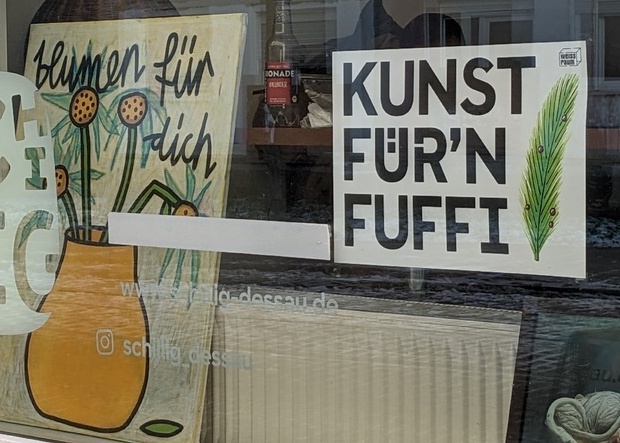 blumen für
dich
ONADE
weiss
raum
KUNST
FÜR'N
FUFFI
www.schillig-dessau.de
schillig_dessau